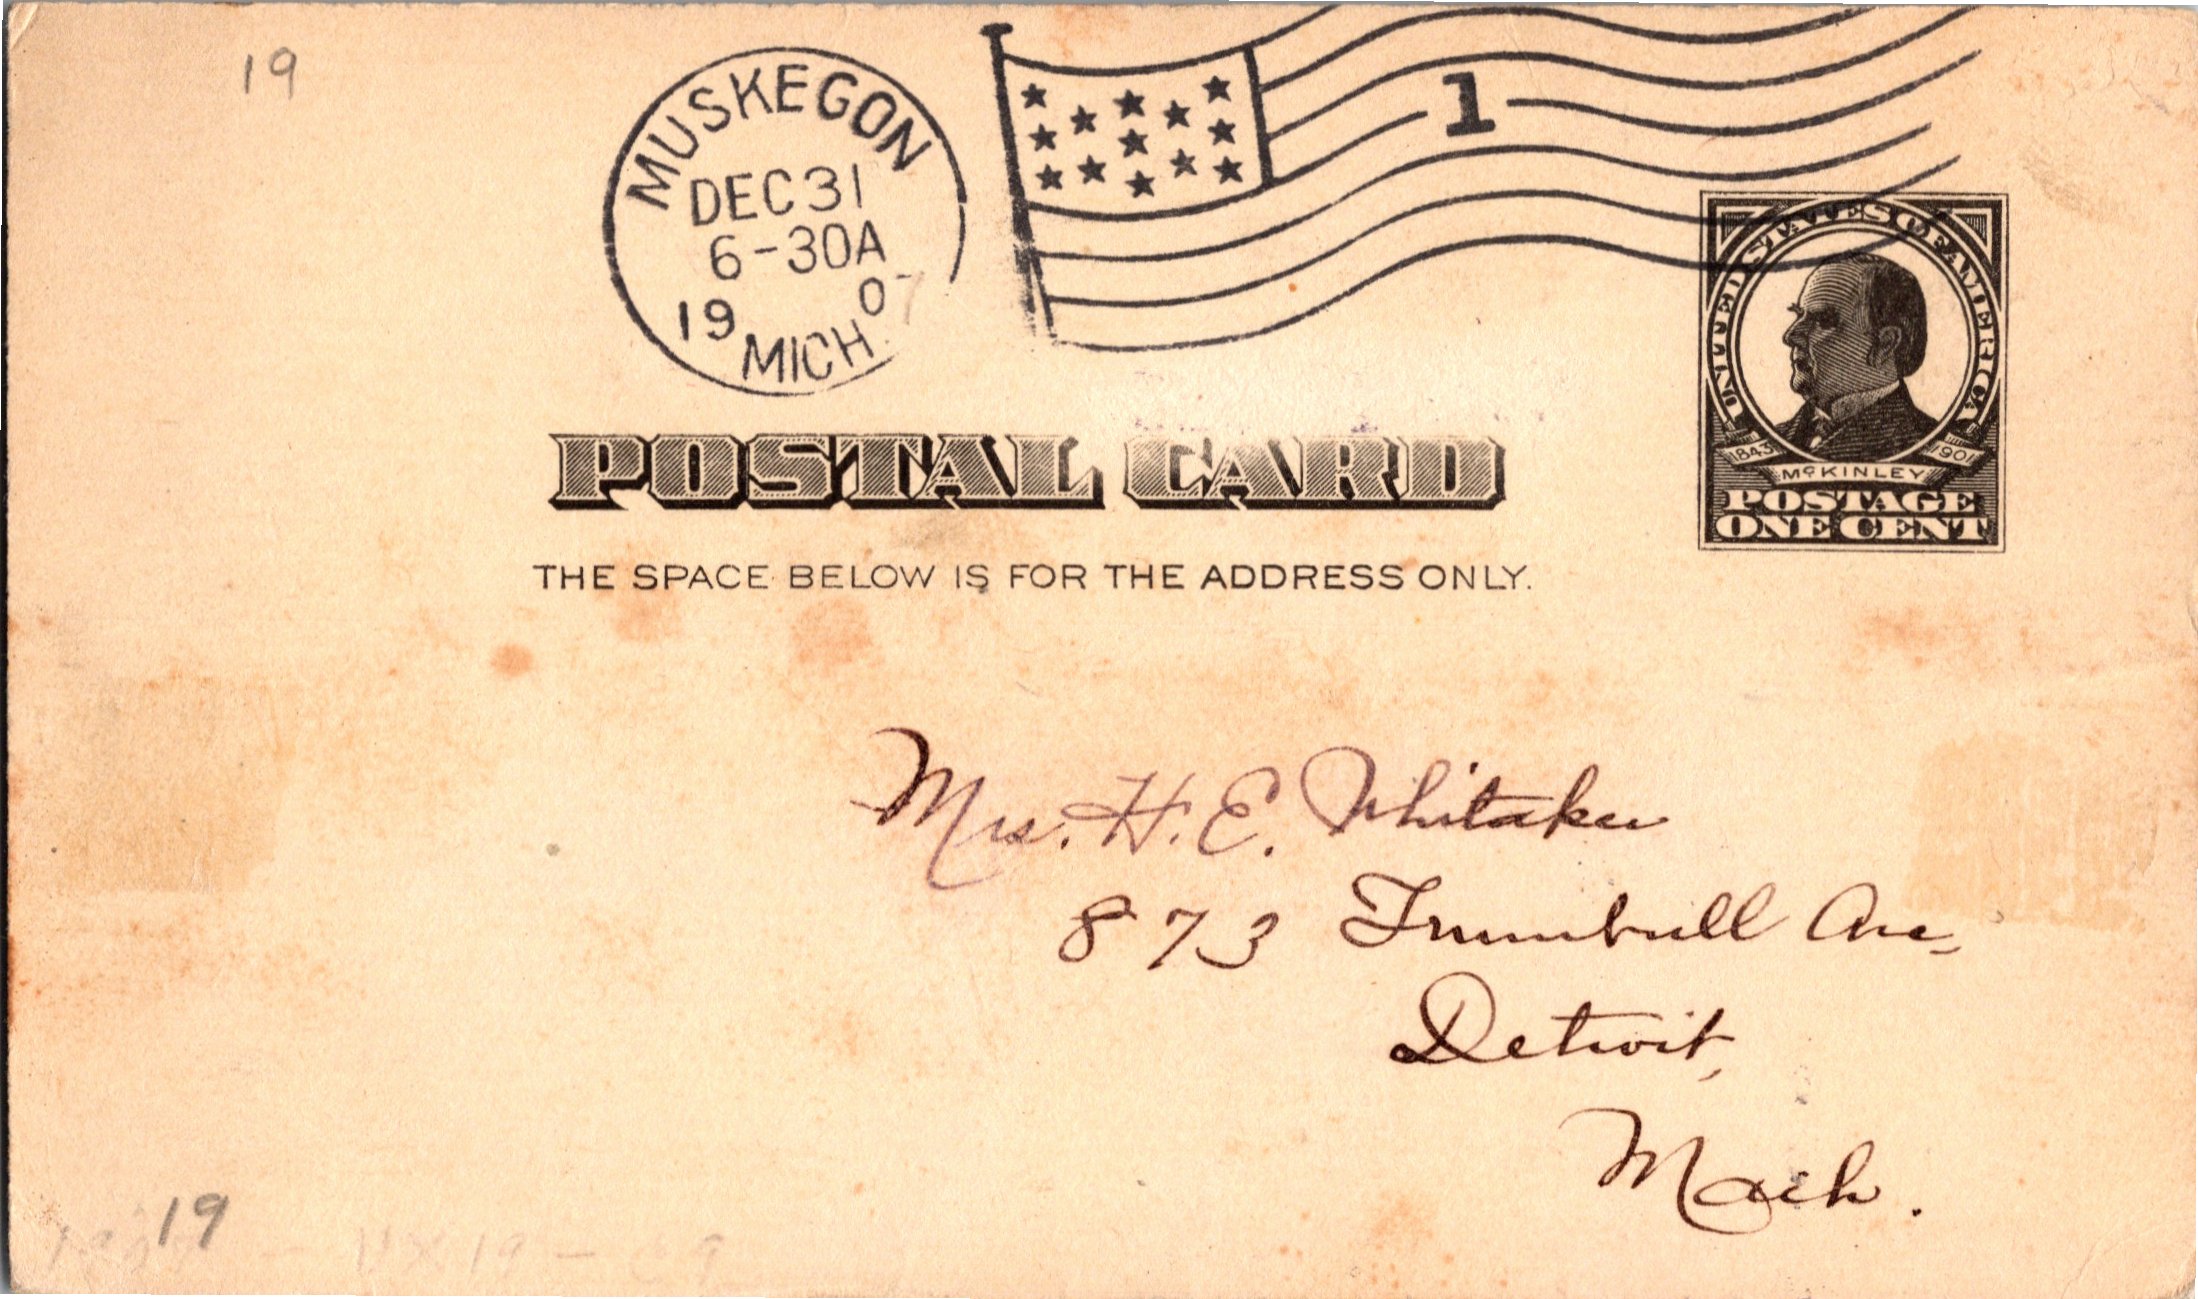 19
MUSKEGON
DEC 31
6-30A
19 07
MICH.
1
UNITED STATES OF AMERICA
1843 1901
McKINLEY
POSTAGE
ONE CENT
POSTAL CARD
THE SPACE BELOW IS FOR THE ADDRESS ONLY.
Mrs. H. E. Whitaker
873 Trumbull Ave,
Detroit,
Mich.
19
UX19 - 69